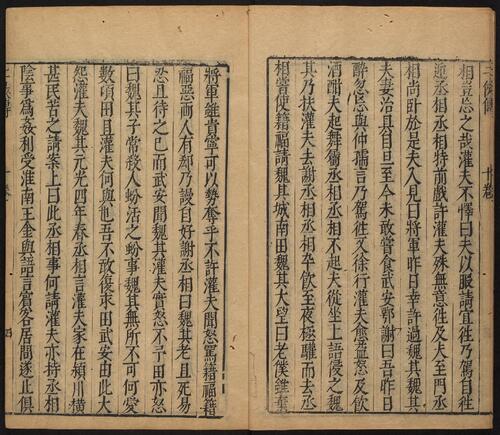 相豈忘之哉灌夫不懌曰夫以服請宜往乃駕自往
迎丞相丞相特前戲許灌夫殊無意往及夫至門丞
相尚卧於是夫入見曰將軍昨日幸許過魏其魏其
夫妻治具自旦至今未敢嘗食武安鄂謝曰吾昨日
醉忽忘與仲孺言乃駕往又徐行灌夫愈益怒及飲
酒酣夫起舞屬丞相丞相不起夫從坐上語侵之魏
其乃扶灌夫去謝丞相丞相卒飲至夜極驩而去丞
相嘗使籍福請魏其城南田魏其大望曰老僕雖棄
將軍雖貴寧可以勢奪乎不許灌夫聞怒罵籍福籍
福惡兩人有郤乃謾自好謝丞相曰魏其老且死易
忍且待之已而武安聞魏其灌夫實怒不予田亦怒
曰魏其子常殺人蚡活之蚡事魏其無所不可何愛
數頃田且灌夫何與也吾不敢復求田武安由此大
怨灌夫魏其元光四年春丞相言灌夫家在潁川橫
甚民苦之請案上曰此丞相事何請灌夫亦持丞相
陰事為姦利受淮南王金與語言賓客居間遂止俱